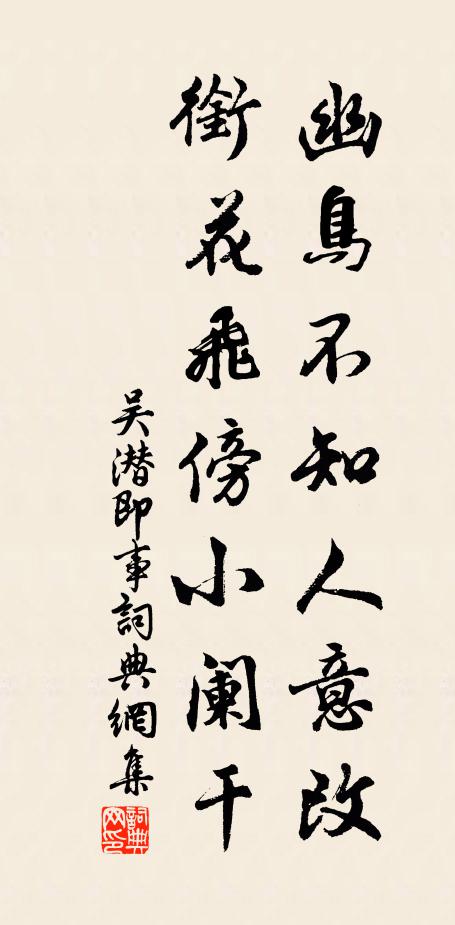 幽鳥不知人意改
銜花飛傍小闌干
吴潜即事詞典網集
詞典网印